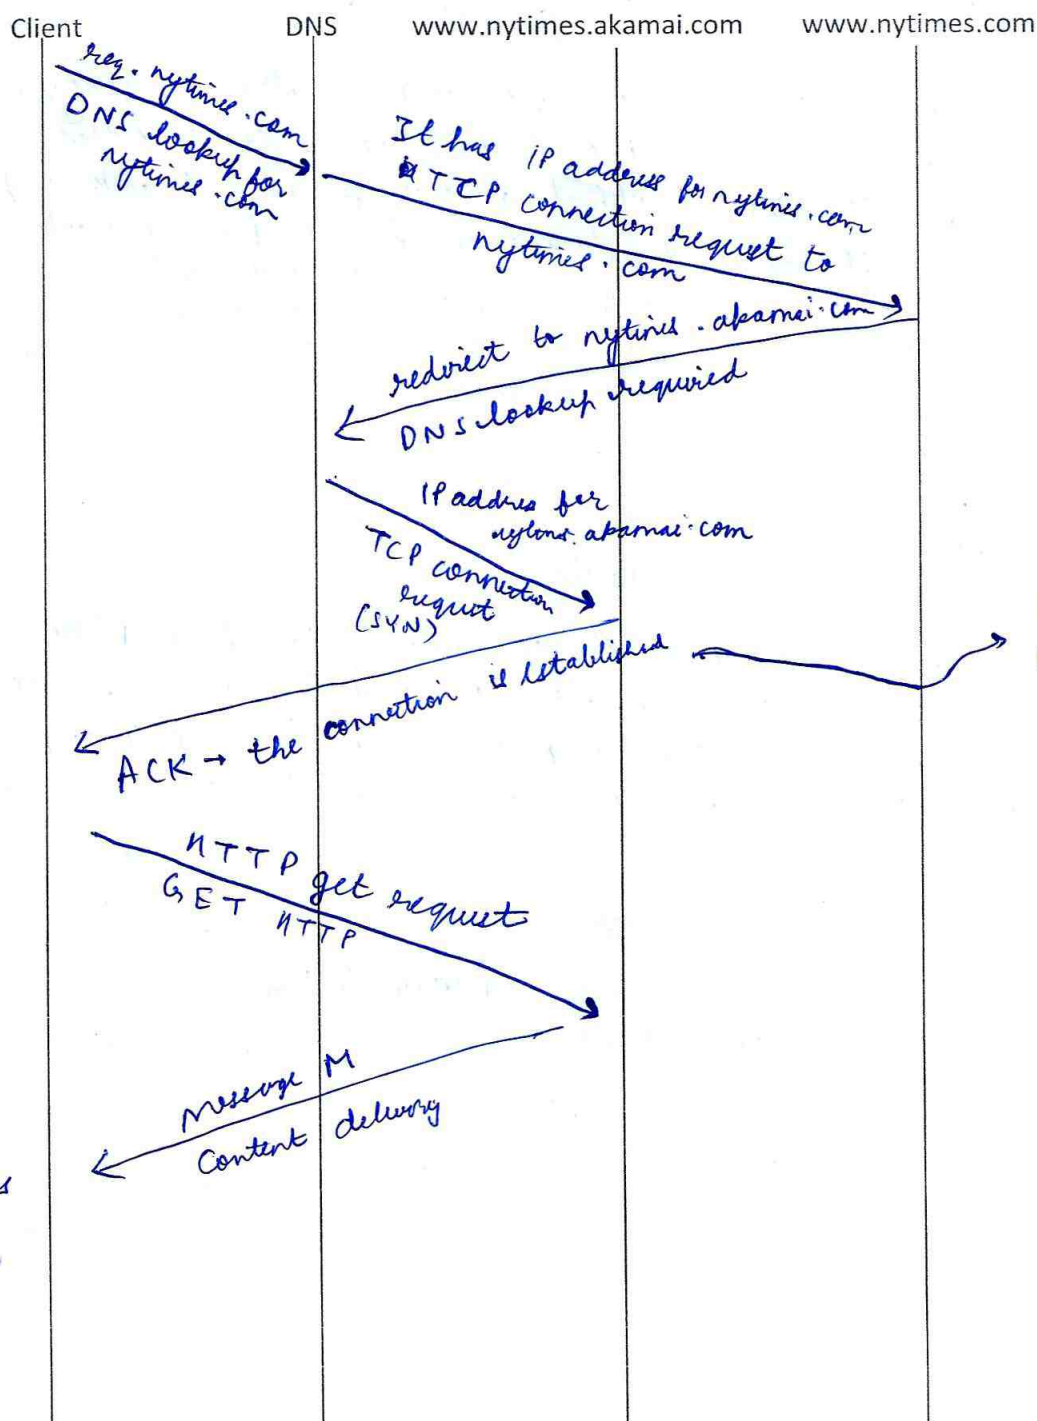 Client DNS www.nytimes.akamai.com www.nytimes.com
req. nytimes.com
DNS lookup for
nytimes.com
It has IP address for nytimes.com
TCP connection request to
nytimes.com
redirect to nytimes.akamai.com
DNS lookup required
IP address for
nytimes.akamai.com
TCP connection
request
(SYN)
ACK → the connection is established
HTTP get request
GET HTTP
Message M
Content delivery